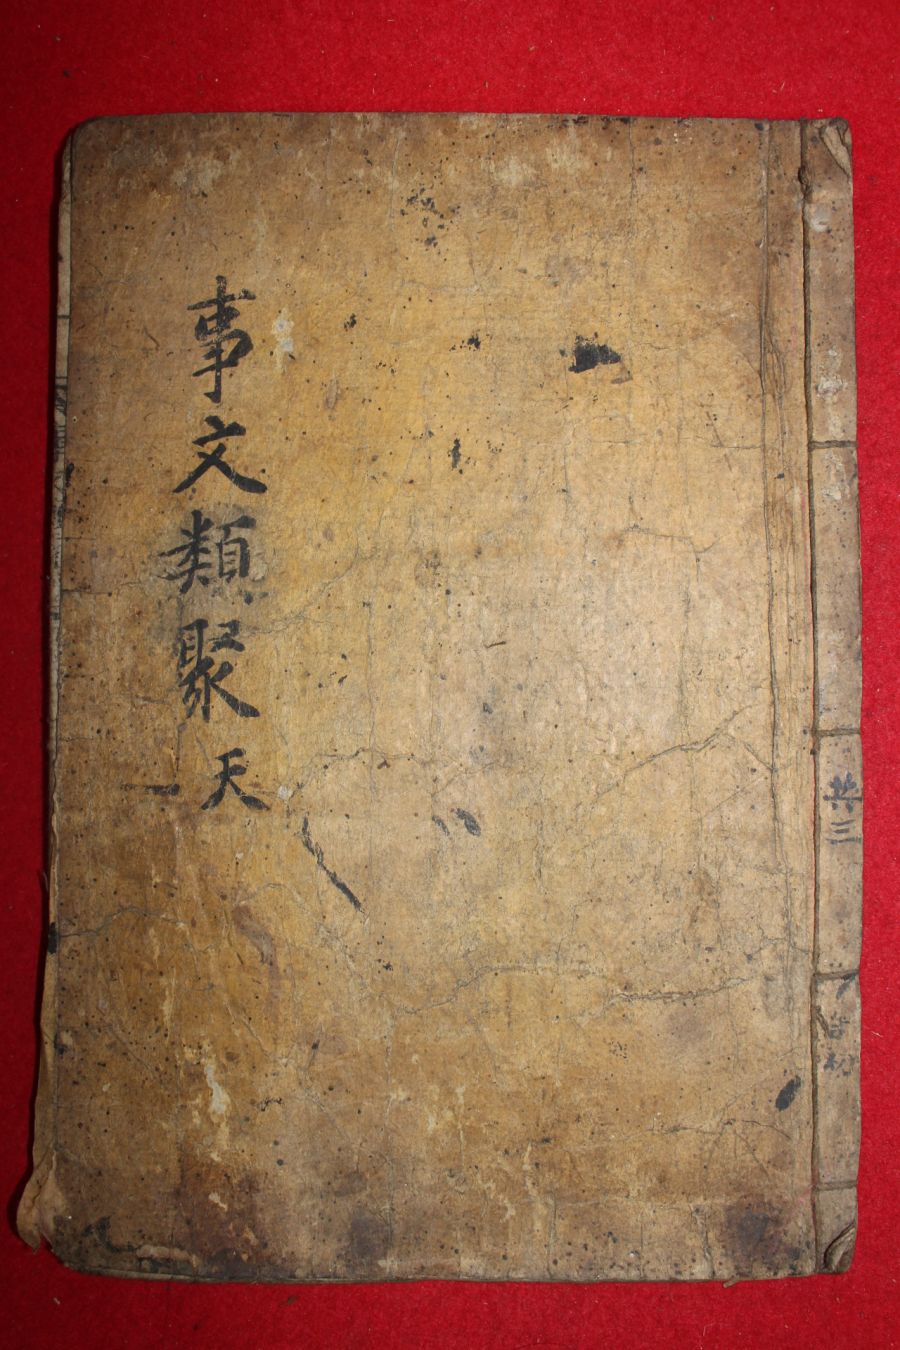 共三
事文類聚 天